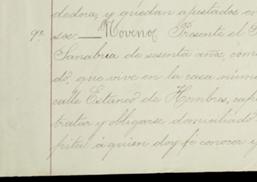 dedora, y quedan ajustados en
9º
soc. — Noveno Presente el
Sanabria de sesenta años, com
do, que vive en la casa núme
calle Estanco de Hombres, cap
tratar y obligarse domiciliado
pital á quien doy fé conocer y